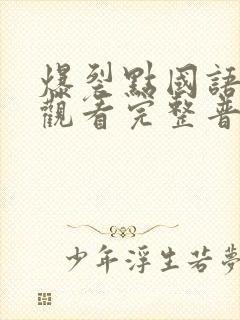 爆裂點國語
觀看完整普
少年浮生若夢